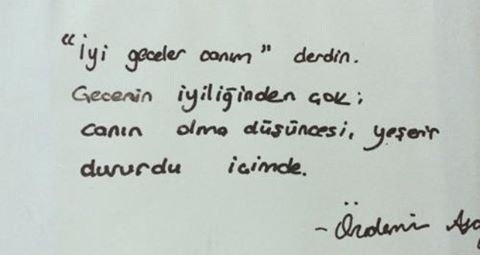 "iyi geceler canım" derdin.
Gecenin iyiliğinden çok;
canın olma düşüncesi, yeşerir
dururdu içimde.
- Özdemir